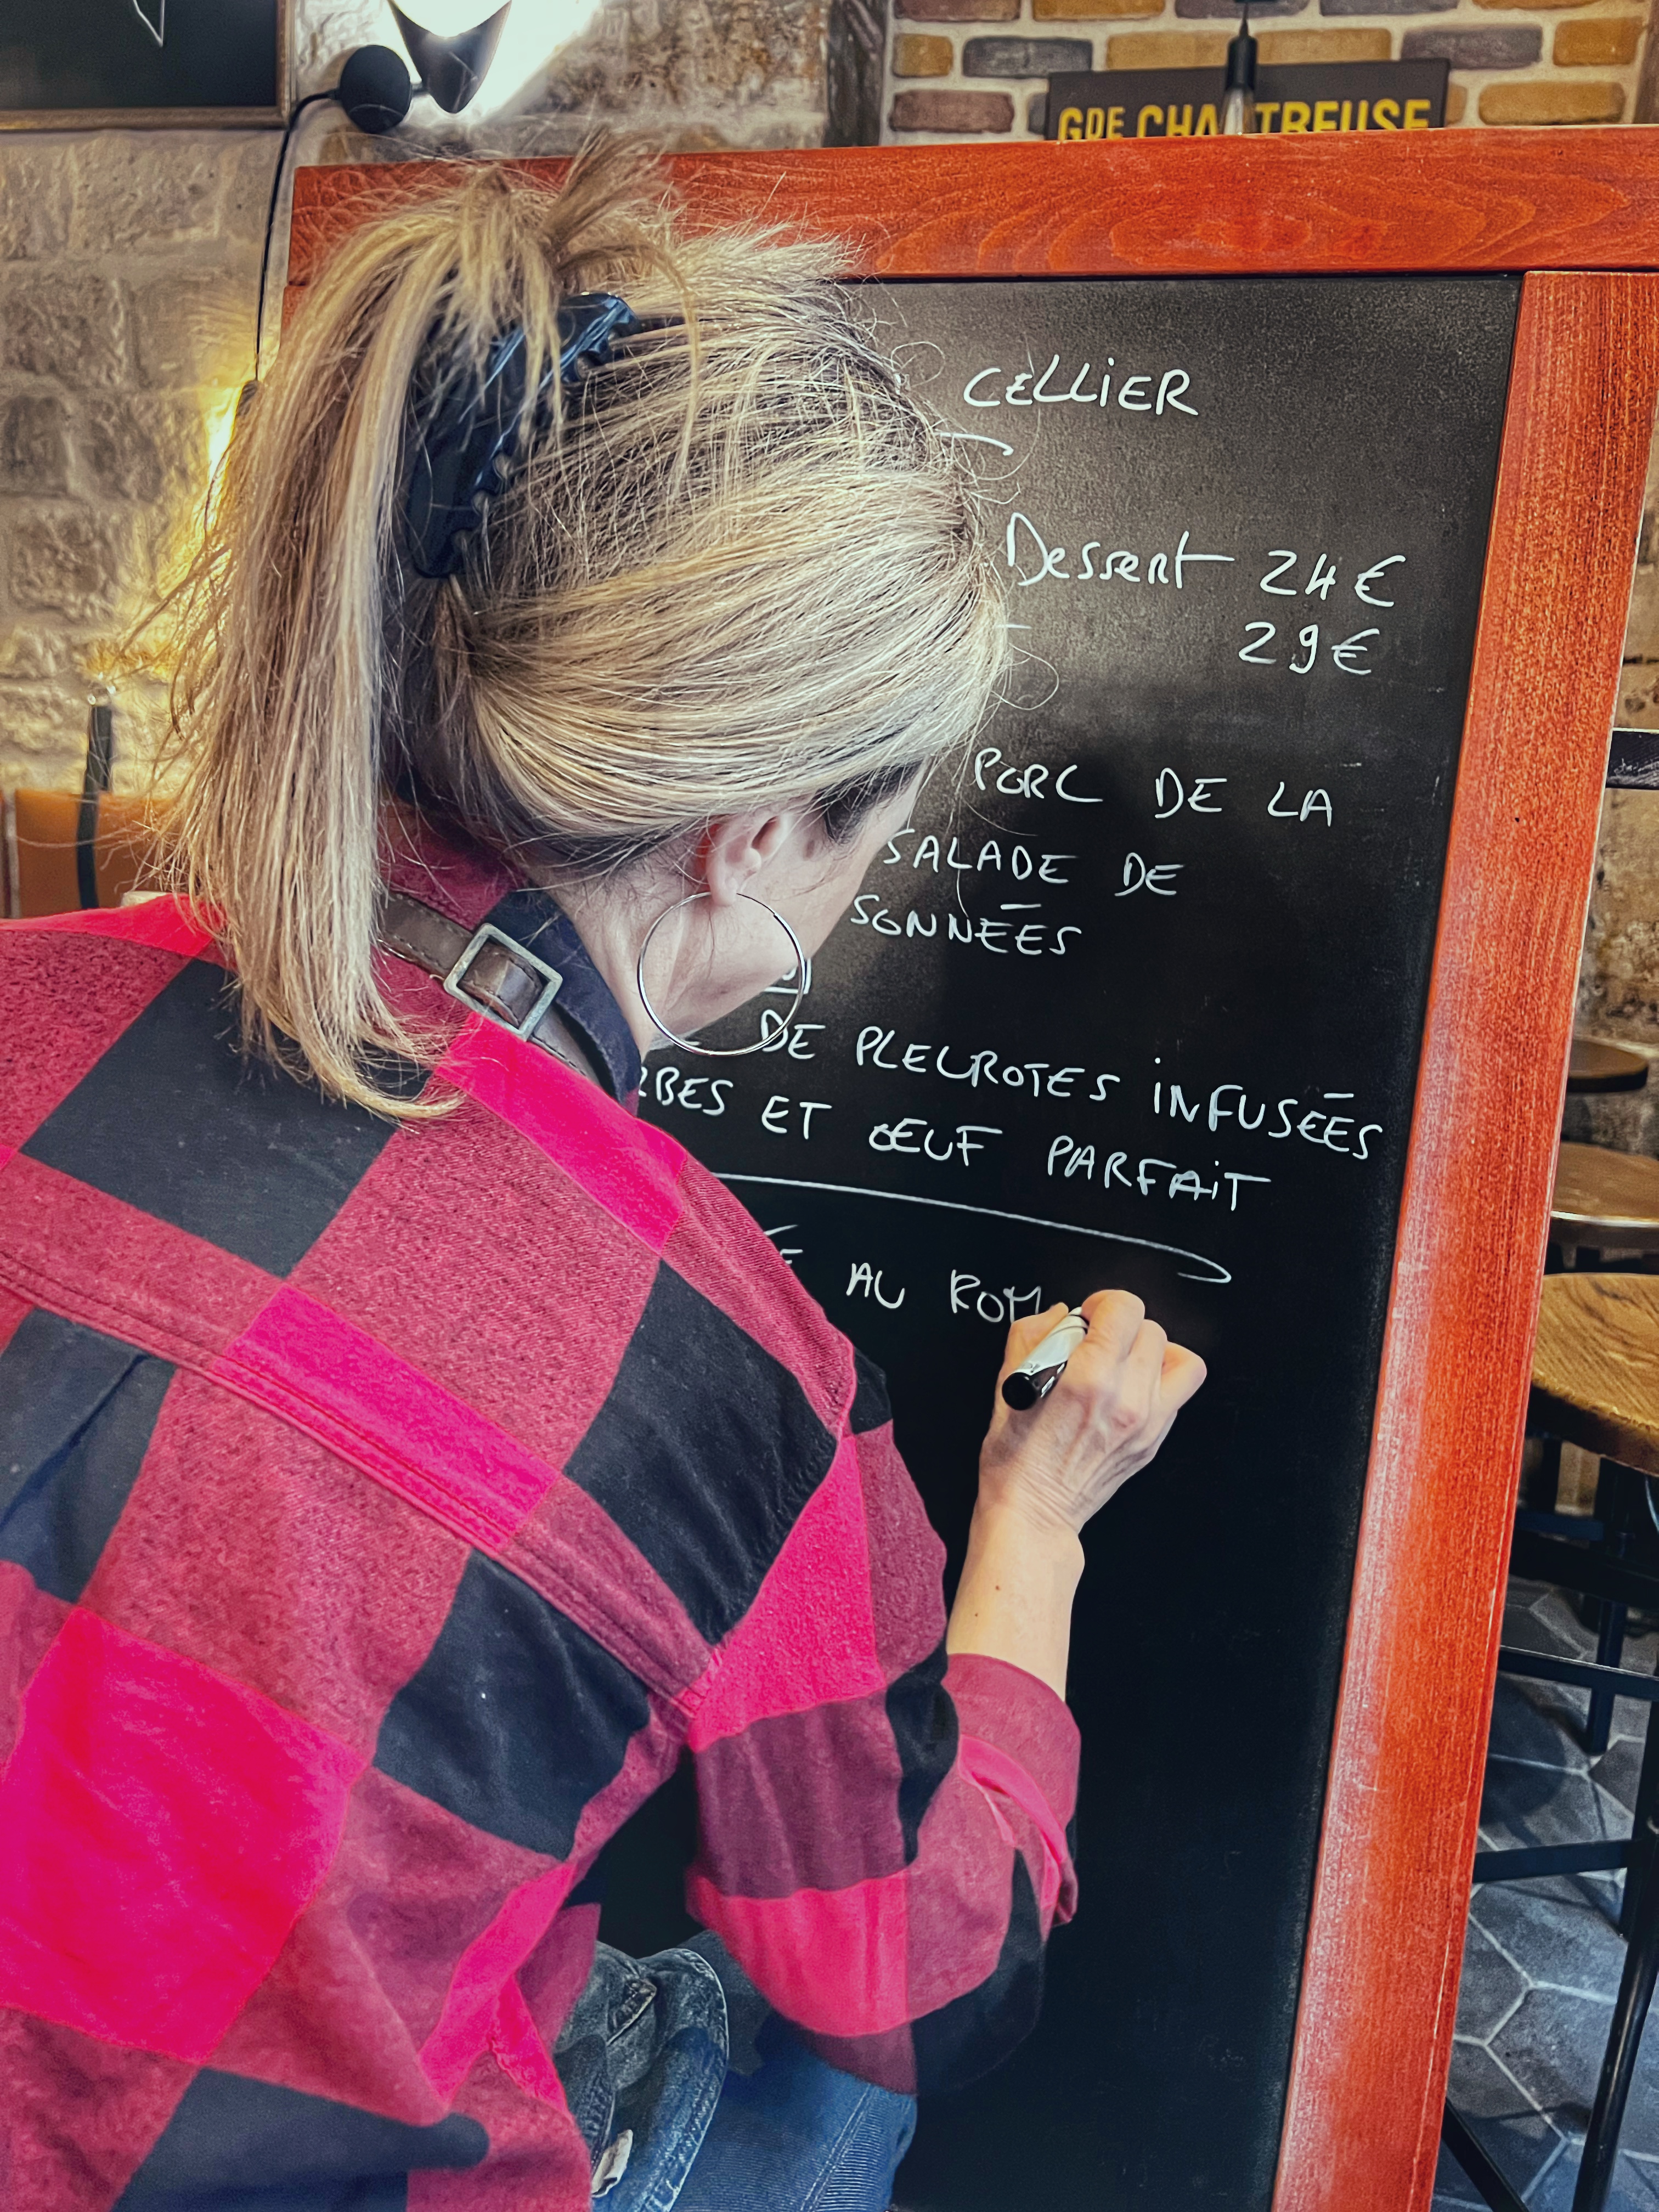 GDE CHARTREUSE
CELLIER
Dessert 24€
29€
PORC DE LA
SALADE DE
SONNÉES
DE PLEUROTES INFUSÉES
RBES ET ŒUF PARFAIT
AU ROM